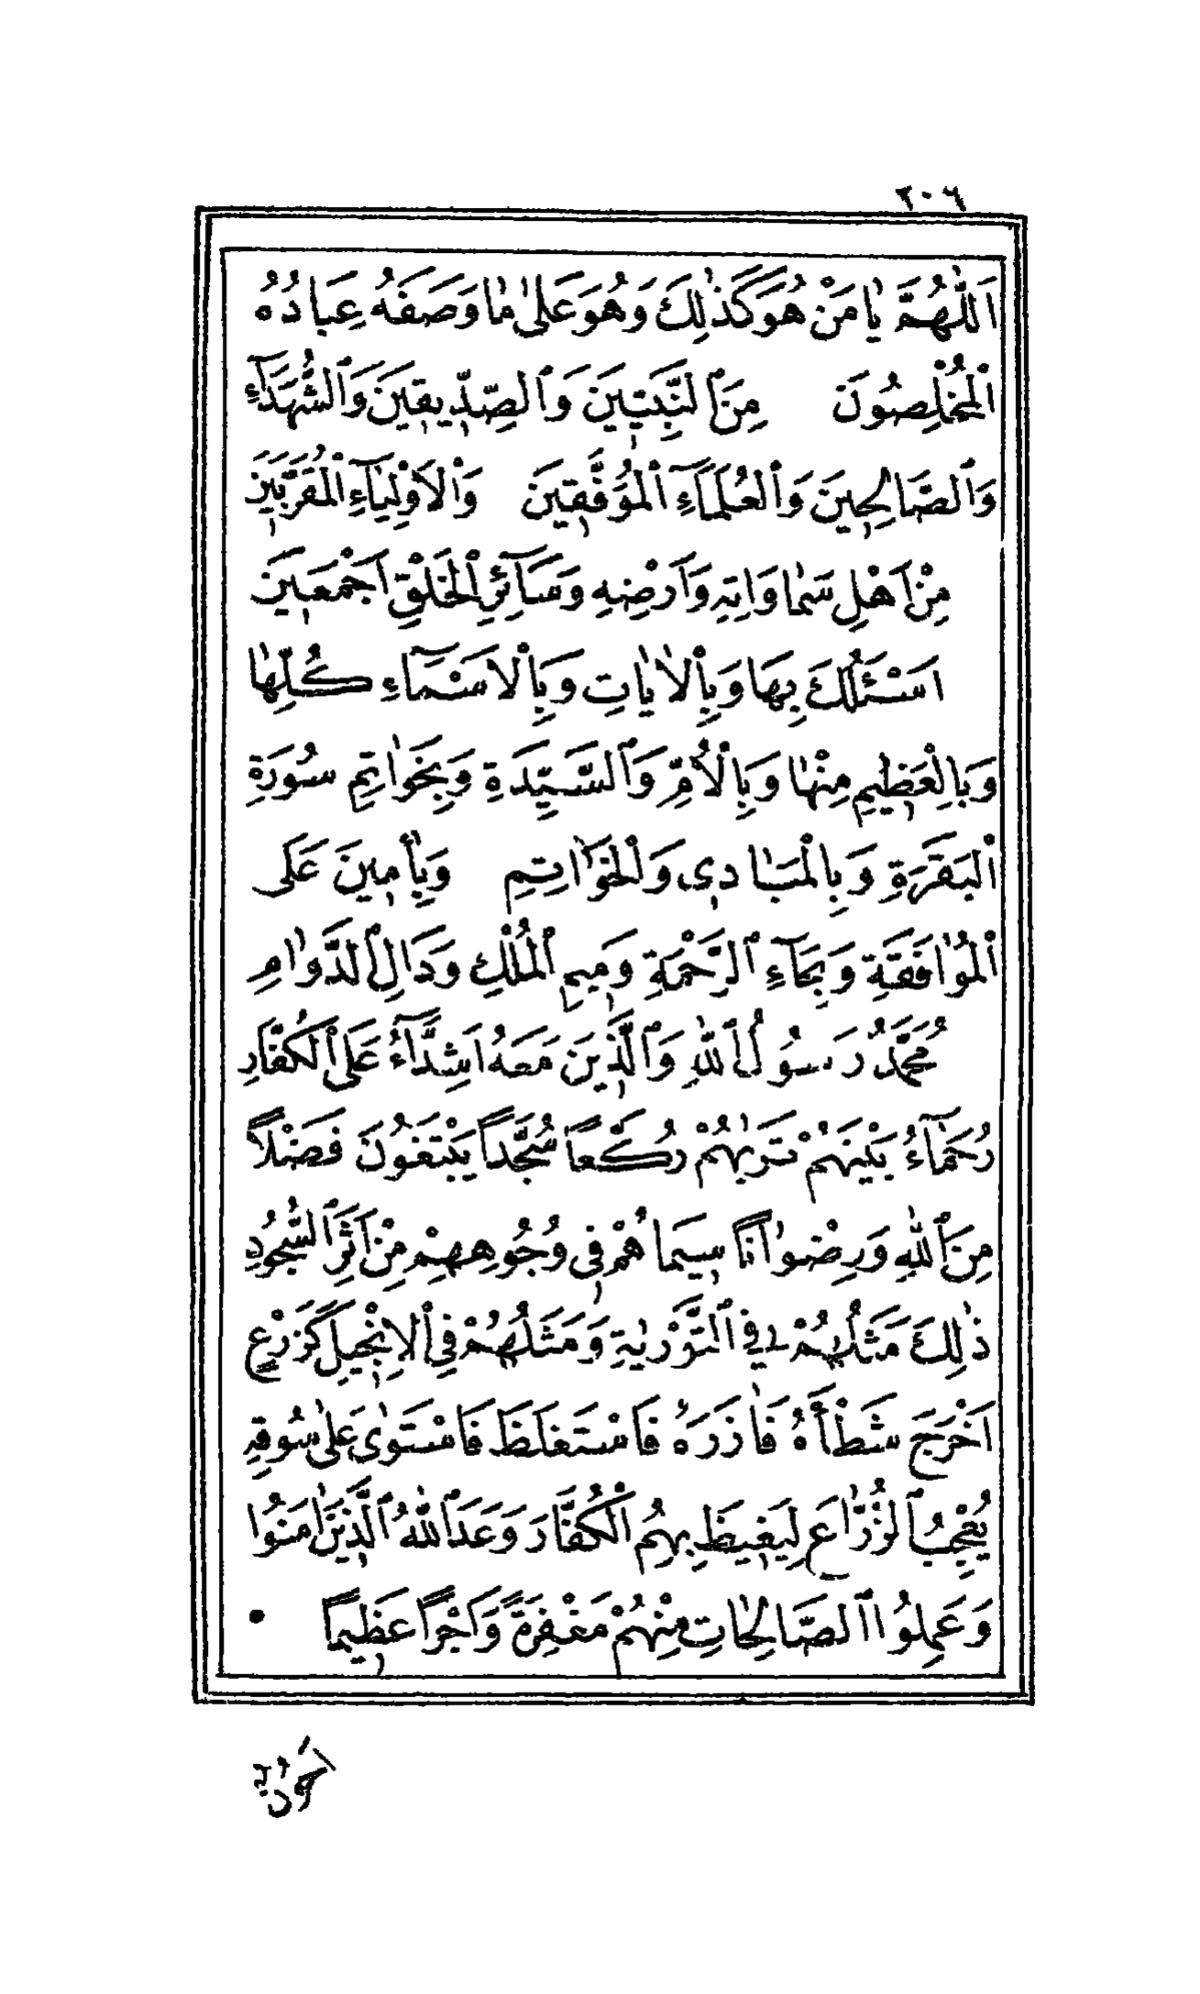 ٣٠٦
اَللّٰهُمَّ يَا مَنْ هُوَ كَذٰلِكَ وَهُوَ عَلٰى مَا وَصَفَهُ عِبَادُهُ
الْمُخْلِصُونَ مِنَ النَّبِيّٖينَ وَالصِّدّٖيقٖينَ وَالشُّهَدَٓاءِ
وَالصَّالِحٖينَ وَالْعُلَمَٓاءِ الْمُوَفَّقٖينَ وَالْاَوْلِيَٓاءِ الْمُقَرَّبٖينَ
مِنْ اَهْلِ سَمَاوَاتِهٖ وَاَرْضِهٖ وَسَٓائِرِ الْخَلْقِ اَجْمَعٖينَ
اَسْئَلُكَ بِهَا وَبِالْاٰيَاتِ وَبِالْاَسْمَٓاءِ كُلِّهَا
وَبِالْعَظٖيمِ مِنْهَا وَبِالْاُمِّ وَالسَّيِّدَةِ وَبِخَوَاتِمِ سُورَةِ
الْبَقَرَةِ وَبِالْمَبَادٖى وَالْخَوَاتِمِ وَبِاٰمٖينَ عَلَى
الْمُوَافَقَةِ وَبِحَٓاءِ الرَّحْمَةِ وَمٖيمِ الْمُلْكِ وَدَالِ الدَّوَامِ
مُحَمَّدٌ رَسُولُ اللّٰهِ وَالَّذٖينَ مَعَهُ اَشِدَّٓاءُ عَلَى الْكُفَّارِ
رُحَمَٓاءُ بَيْنَهُمْ تَرٰيهُمْ رُكَّعًا سُجَّدًا يَبْتَغُونَ فَضْلًا
مِنَ اللّٰهِ وَرِضْوَانًا سٖيمَاهُمْ فٖى وُجُوهِهِمْ مِنْ اَثَرِ السُّجُودِ
ذٰلِكَ مَثَلُهُمْ فِي التَّوْرٰيةِ وَمَثَلُهُمْ فِي الْاِنْجٖيلِ كَزَرْعٍ
اَخْرَجَ شَطْأَهُ فَاٰزَرَهُ فَاسْتَغْلَظَ فَاسْتَوٰى عَلٰى سُوقِهٖ
يُعْجِبُ الزُّرَّاعَ لِيَغٖيظَ بِهِمُ الْكُفَّارَ وَعَدَ اللّٰهُ الَّذٖينَ اٰمَنُوا
وَعَمِلُوا الصَّالِحَاتِ مِنْهُمْ مَغْفِرَةً وَاَجْرًا عَظٖيمًا •